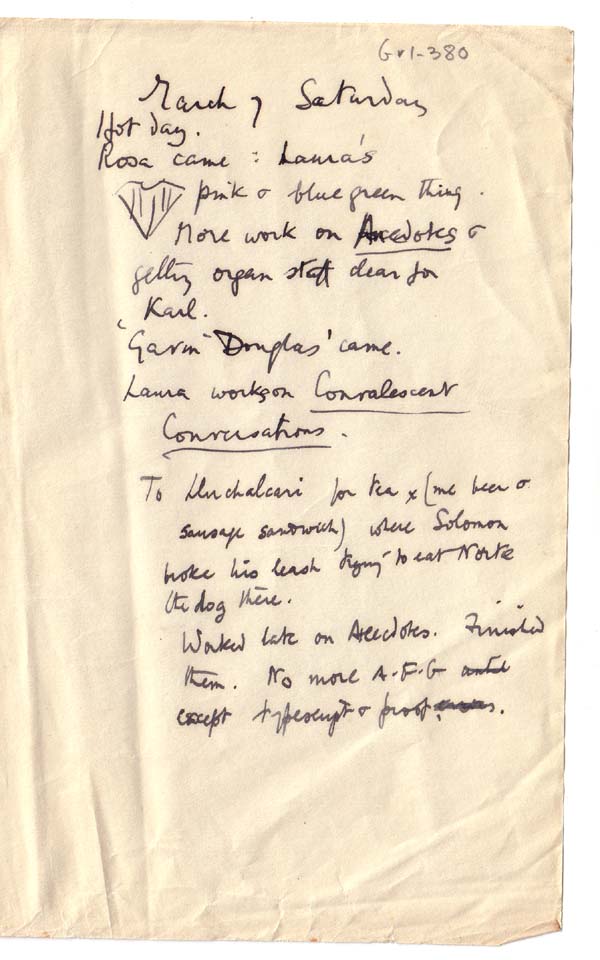 Gv1-380
March 7 Saturday
Hot day.
Rosa came : Laura's
pink & blue green thing.
More work on Anecdotes &
getting organ staff clear for
Karl.
'Gavin Douglas' came.
Laura works on Convalescent
Conversations.
To Lluchalcari for tea x (me beer &
sausage sandwich) where Solomon
broke his leash trying to eat
the dog there.
Worked late on Anecdotes. Finished
them. No more A-F-G until
except typescript & proof.